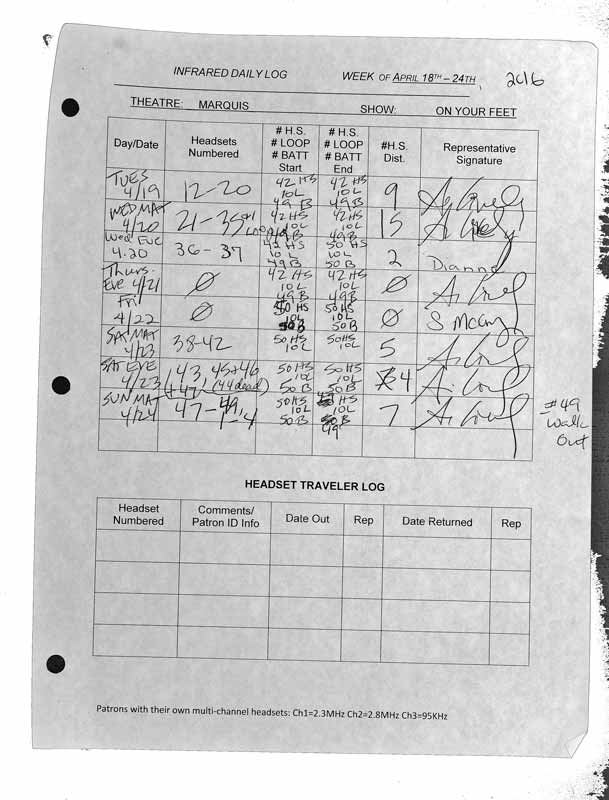 INFRARED DAILY LOG WEEK OF APRIL 18TH – 24TH, 2016
THEATRE: MARQUIS SHOW: ON YOUR FEET
Day/Date Headsets Numbered # H.S. # LOOP # BATT Start # H.S. # LOOP # BATT End #H.S. Dist. Representative Signature
TUES 4/19 12-20 42 HS 10L 49 B 42 HS 10L 49 B 9
WED MAT 4/20 21-35 42 HS 10L 49 B 42 HS 10L 49 B 15
Wed Eve 4.20 36-37 42 HS 10 L 49 B 50 HS 10 L 50 B 2 Dianne
Thurs. Eve 4/21 Ø 42 HS 10L 49 B 42 HS 10L 49 B Ø
Fri 4/22 Ø 50 HS 10L 50 B 50 HS 10L 50 B Ø
SAT MAT 4/23 38-42 50 HS 10L 50 HS 10L 5
SAT EVE 4/23 43, 45+46 +47 (44 dead) 50 HS 10L 50 B 50 HS 10L 50 B 4
SUN MAT 4/24 47-49, 1-4 50 HS 10L 50 B 49 HS 10L 50 B 49 7
#49
Walk
Out
HEADSET TRAVELER LOG
Headset Numbered Comments/ Patron ID Info Date Out Rep Date Returned Rep
Patrons with their own multi-channel headsets: Ch1=2.3MHz Ch2=2.8MHz Ch3=95KHz